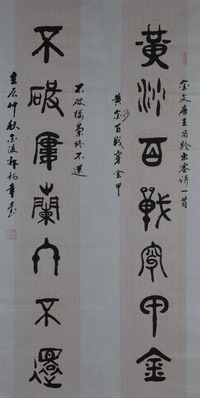 金文書王昌齡出塞詩一首
黃沙百戰穿甲金
黄沙百戰穿金甲
不破樓蘭終不還
不破廔蘭冬不還
壬辰 秋金陵